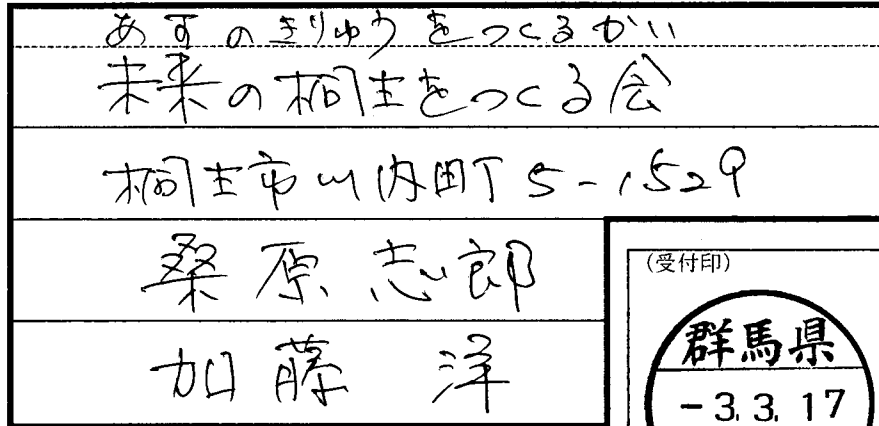 あすのきりゅうをつくるかい
未来の桐生をつくる会
桐生市川内町5-1529
桑原志郎
加藤 洋
(受付印)
群馬県
-3.3.17